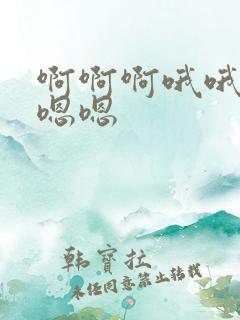 啊啊啊哦哦
嗯嗯
韩宝拉
未经同意禁止转载